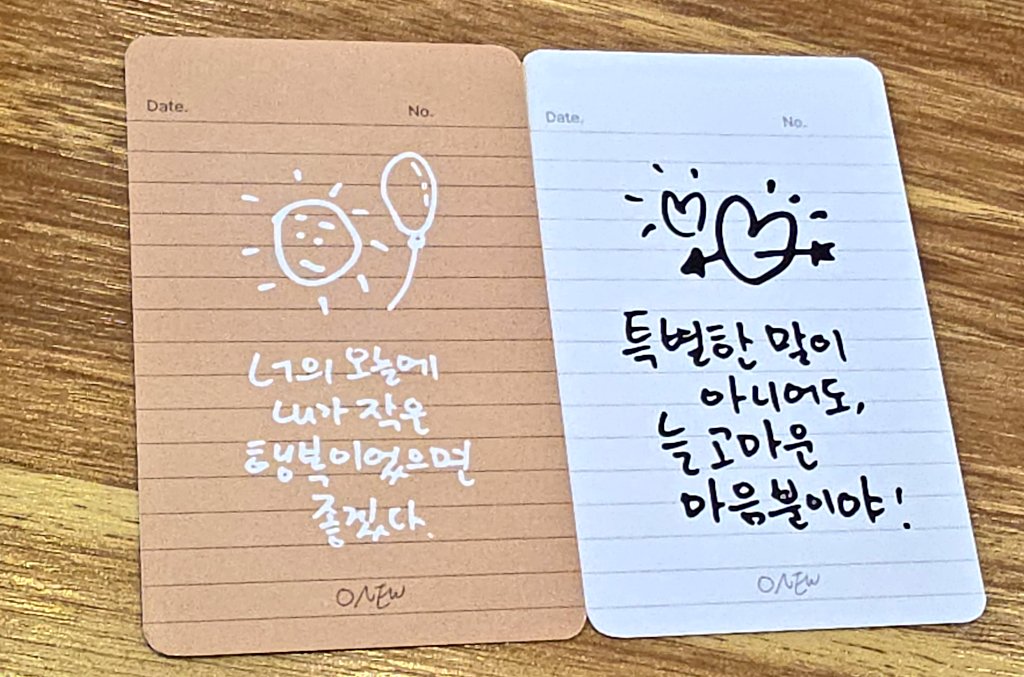 Date. No.
너의 오늘에
내가 작은
행복이었으면
좋겠다.
ONEW
Date. No.
특별한 말이
아니어도,
늘 고마운
마음뿐이야!
ONEW